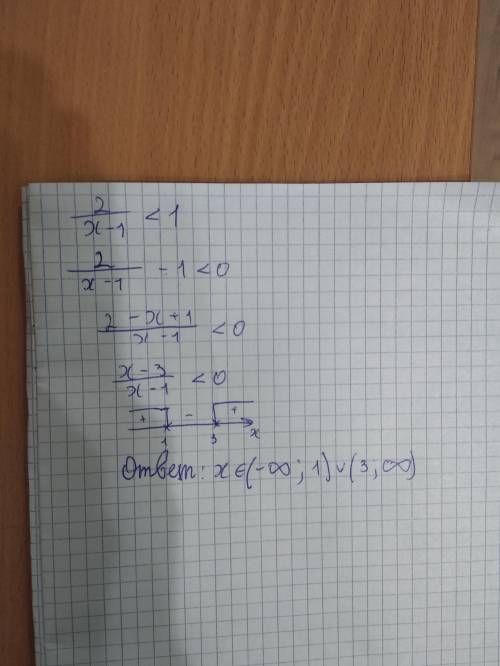 2/(x-1) < 1
2/(x-1) - 1 < 0
(2-x+1)/(x-1) < 0
(x-3)/(x-1) < 0
+ - +
1 3 x
Ответ: x∈(-∞; 1)∪(3; ∞)